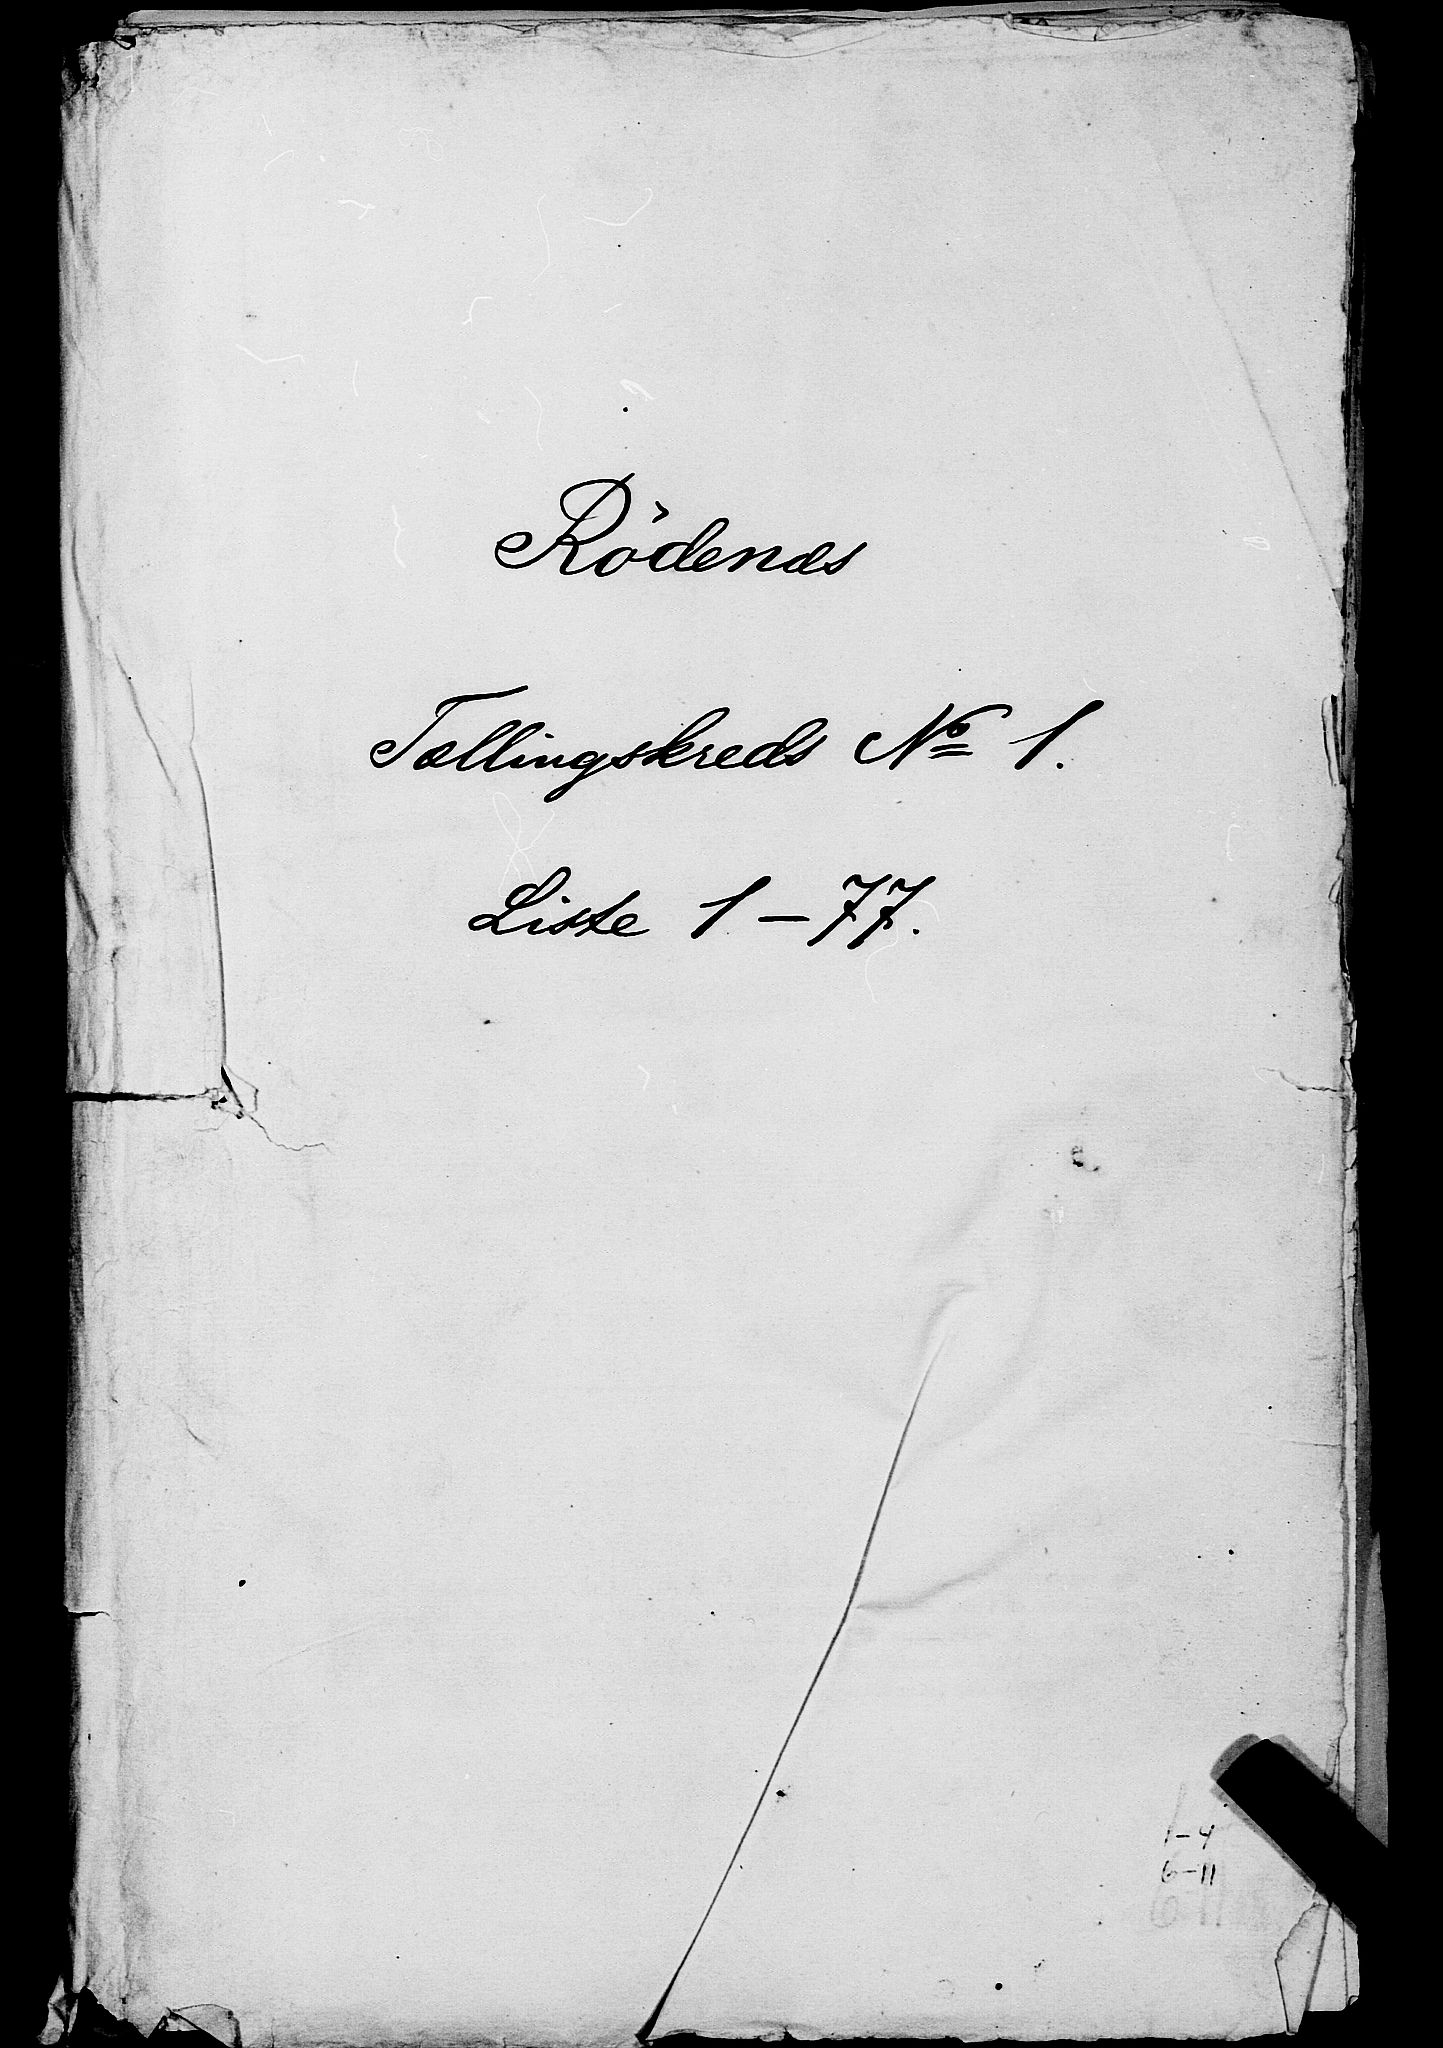 Rödenæs
Tællingskreds No 1.
Liste 1 – 77.
1–4
6–11
6–11